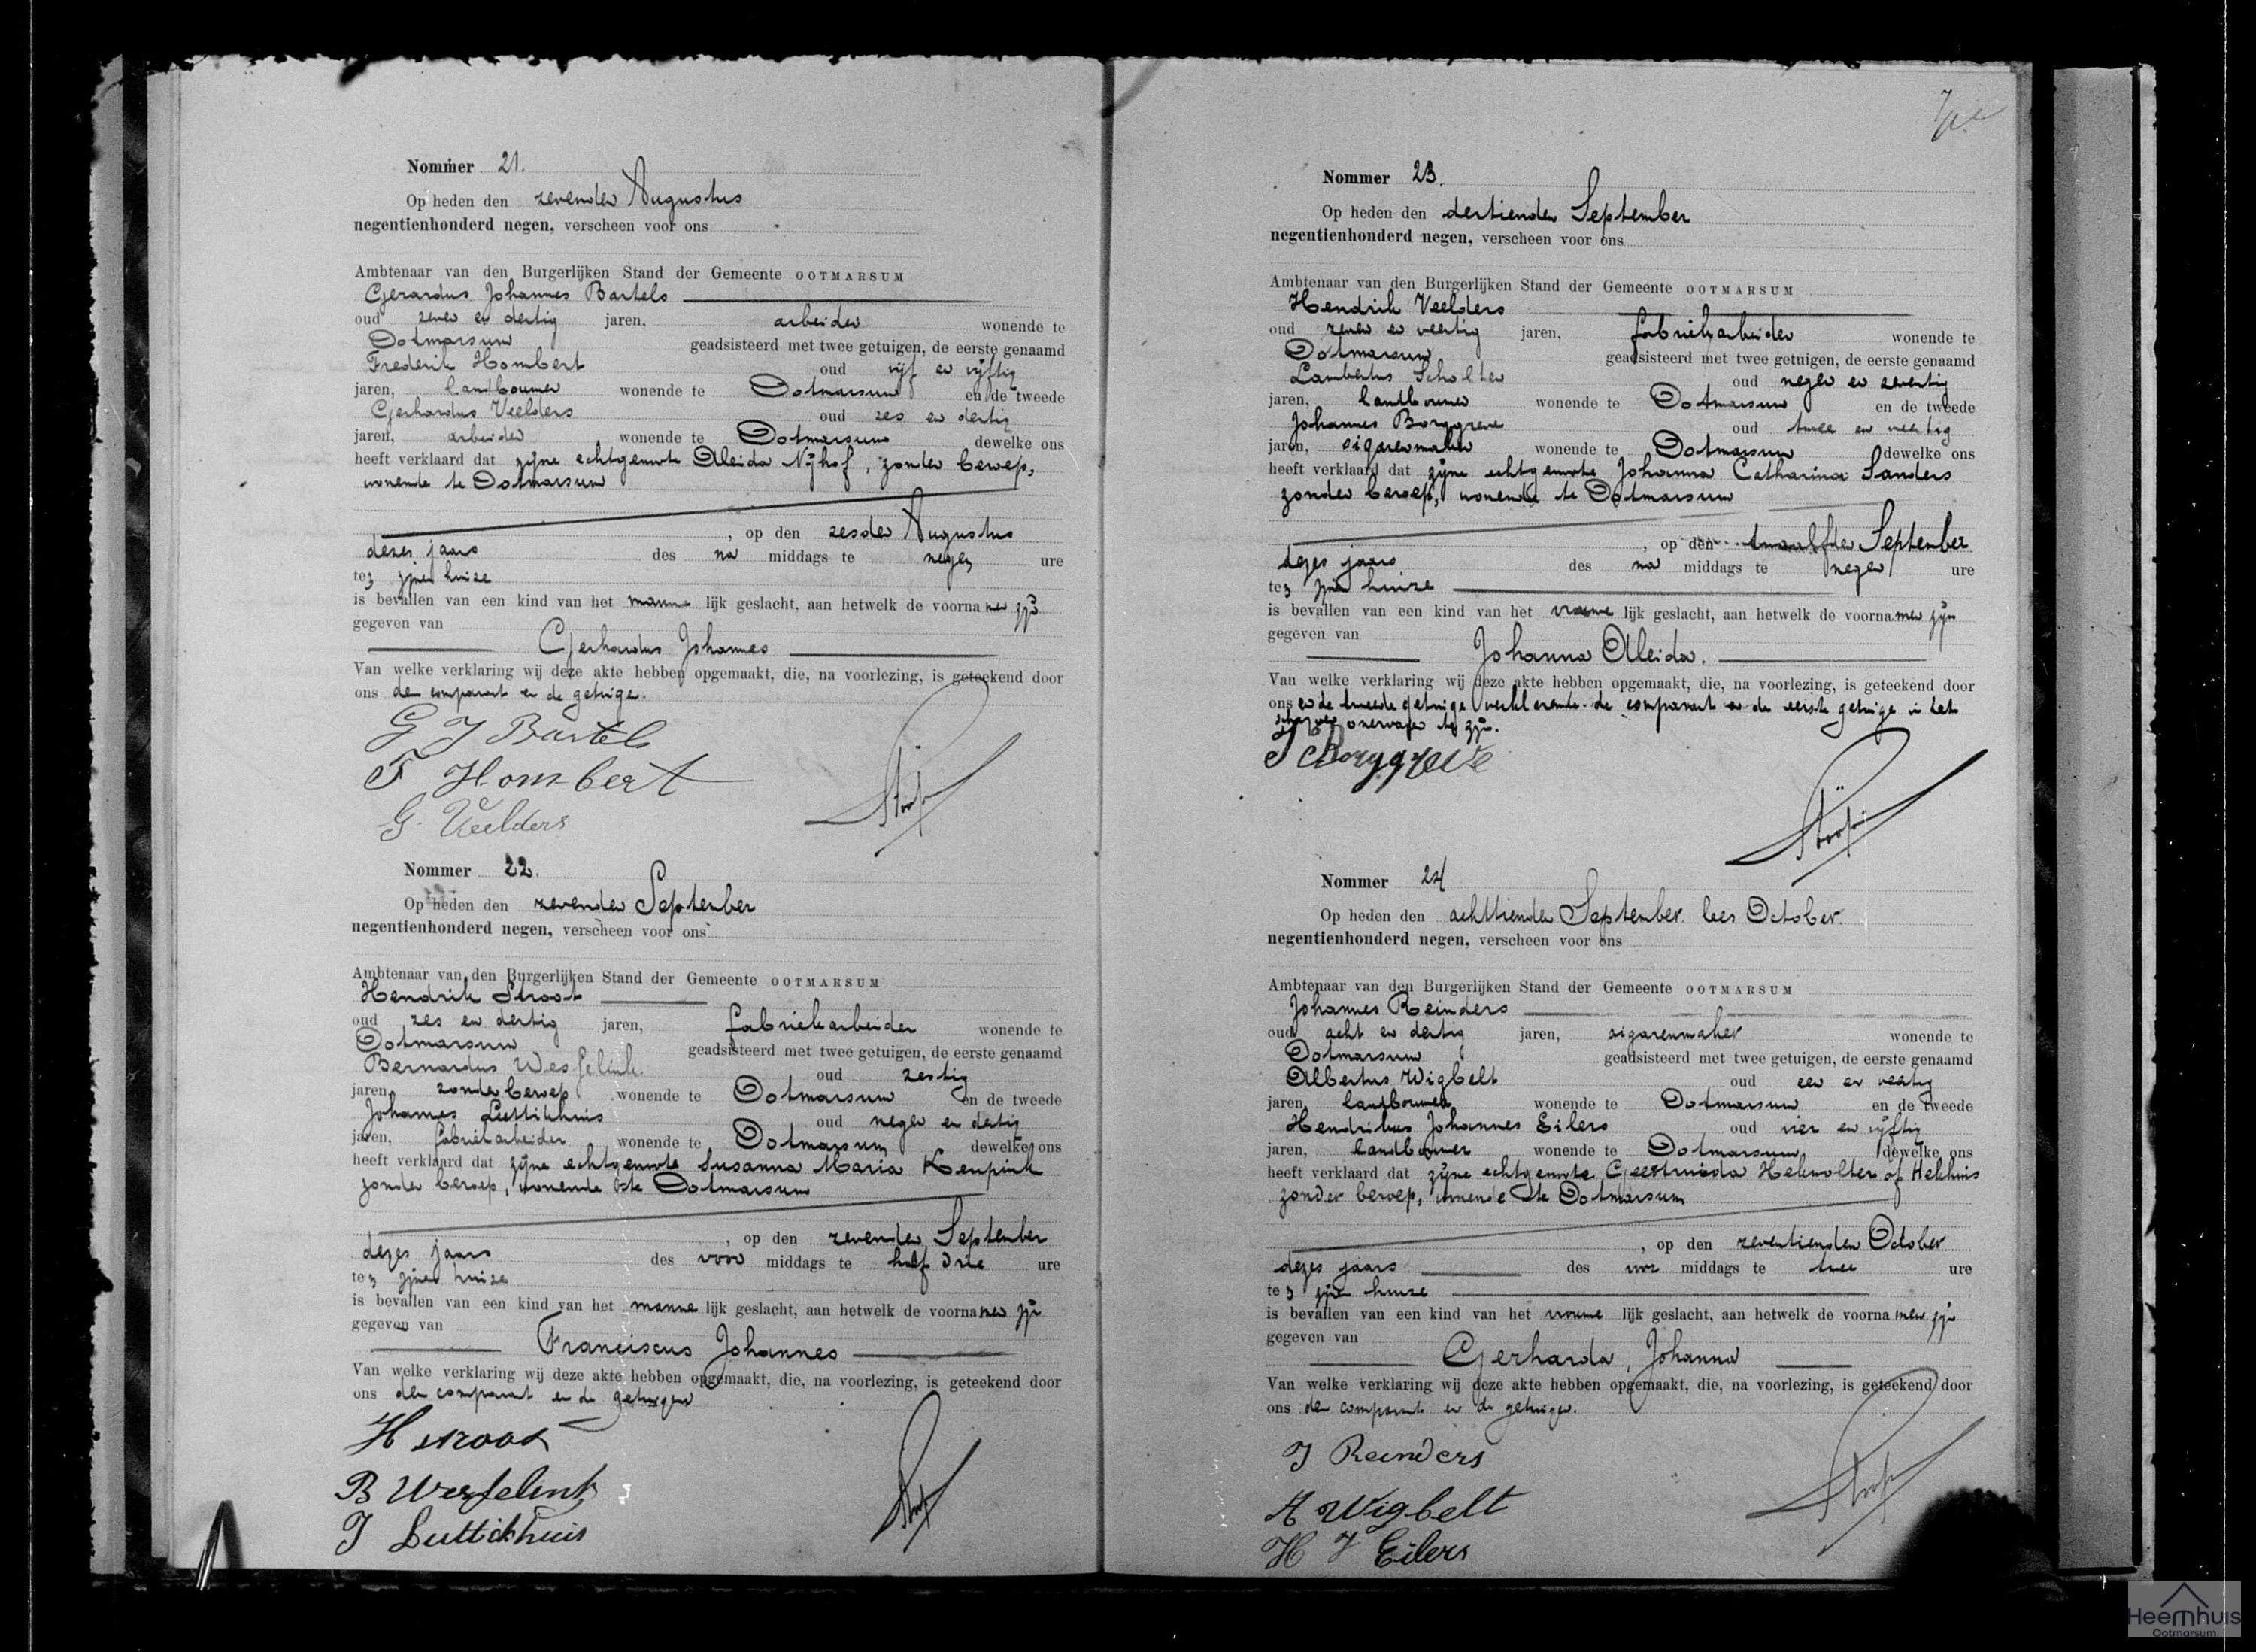 Nommer 21.
Op heden den zevenden Augustus
negentienhonderd negen, verscheen voor ons
Ambtenaar van den Burgerlijken Stand der Gemeente OOTMARSUM
Gerardus Johannes Bartels
oud zeven en dertig jaren, arbeider wonende te
Ootmarsum geadsisteerd met twee getuigen, de eerste genaamd
Frederik Hombert oud vijf en vijftig
jaren, landbouwer wonende te Ootmarsum en de tweede
Gerhardus Veelders oud zes en dertig
jaren, arbeider wonende te Ootmarsum dewelke ons
heeft verklaard dat zijne echtgenoote Aleida Nijhof, zonder beroep,
wonende te Ootmarsum
, op den zesden Augustus
dezes jaars des na middags te negen ure
te zijnen huize
is bevallen van een kind van het manne lijk geslacht, aan hetwelk de voorna men zijn
gegeven van
Gerhardus Johannes
Van welke verklaring wij deze akte hebben opgemaakt, die, na voorlezing, is geteekend door
ons den comparant en de getuigen.
G J Bartels
F Hombert
G. Veelders
Nommer 22.
Op heden den zevenden September
negentienhonderd negen, verscheen voor ons
Ambtenaar van den Burgerlijken Stand der Gemeente OOTMARSUM
Hendrik Stroot
oud zes en dertig jaren, fabriekarbeider wonende te
Ootmarsum geadsisteerd met twee getuigen, de eerste genaamd
Bernardus Wesselink oud zestig
jaren zonder beroep wonende te Ootmarsum en de tweede
Johannes Luttikhuis oud negen en dertig
jaren, fabriekarbeider wonende te Ootmarsum dewelke ons
heeft verklaard dat zijne echtgenoote Susanna Maria Keupink
zonder beroep, wonende te Ootmarsum
, op den zevenden September
dezes jaars des voor middags te half drie ure
te zijnen huize
is bevallen van een kind van het manne lijk geslacht, aan hetwelk de voorna men zijn
gegeven van
Franciscus Johannes
Van welke verklaring wij deze akte hebben opgemaakt, die, na voorlezing, is geteekend door
ons den comparant en de getuigen
H Stroot
B Wesselink
J Luttikhuis
Nommer 23.
Op heden den dertienden September
negentienhonderd negen, verscheen voor ons
Ambtenaar van den Burgerlijken Stand der Gemeente OOTMARSUM
Hendrik Veelders
oud zeven en veertig jaren, fabriekarbeider wonende te
Ootmarsum geadsisteerd met twee getuigen, de eerste genaamd
Lambertus Scholten oud negen en zeventig
jaren, landbouwer wonende te Ootmarsum en de tweede
Johannes Borggreve oud twee en veertig
jaren, sigarenmaker wonende te Ootmarsum dewelke ons
heeft verklaard dat zijne echtgenoote Johanna Catharina Sanders
zonder beroep, wonende te Ootmarsum
, op den twaalfden September
dezes jaars des na middags te negen ure
te zijnen huize
is bevallen van een kind van het vrouwe lijk geslacht, aan hetwelk de voorna men zijn
gegeven van
Johanna Aleida.
Van welke verklaring wij deze akte hebben opgemaakt, die, na voorlezing, is geteekend door
ons en de tweede getuige verklarende de comparant en de eerste getuige in het
schrijven onervaren te zijn.
J Borggreve
Nommer 24
Op heden den achttienden September lees October.
negentienhonderd negen, verscheen voor ons
Ambtenaar van den Burgerlijken Stand der Gemeente OOTMARSUM
Johannes Reinders
oud acht en dertig jaren, sigarenmaker wonende te
Ootmarsum geadsisteerd met twee getuigen, de eerste genaamd
Albertus Wigbelt oud een en veertig
jaren, landbouwer wonende te Ootmarsum en de tweede
Hendrikus Johannes Eilers oud vier en vijftig
jaren, landbouwer wonende te Ootmarsum dewelke ons
heeft verklaard dat zijne echtgenoote Geertruida Hekwolter of Hekhuis
zonder beroep, wonende te Ootmarsum
, op den zeventienden October
dezes jaars des voor middags te twee ure
te zijnen huize
is bevallen van een kind van het vrouwe lijk geslacht, aan hetwelk de voorna men zijn
gegeven van
Gerharda, Johanna
Van welke verklaring wij deze akte hebben opgemaakt, die, na voorlezing, is geteekend door
ons den comparant en de getuigen.
J Reinders
A Wigbelt
H J Eilers
Heemhuis
Ootmarsum